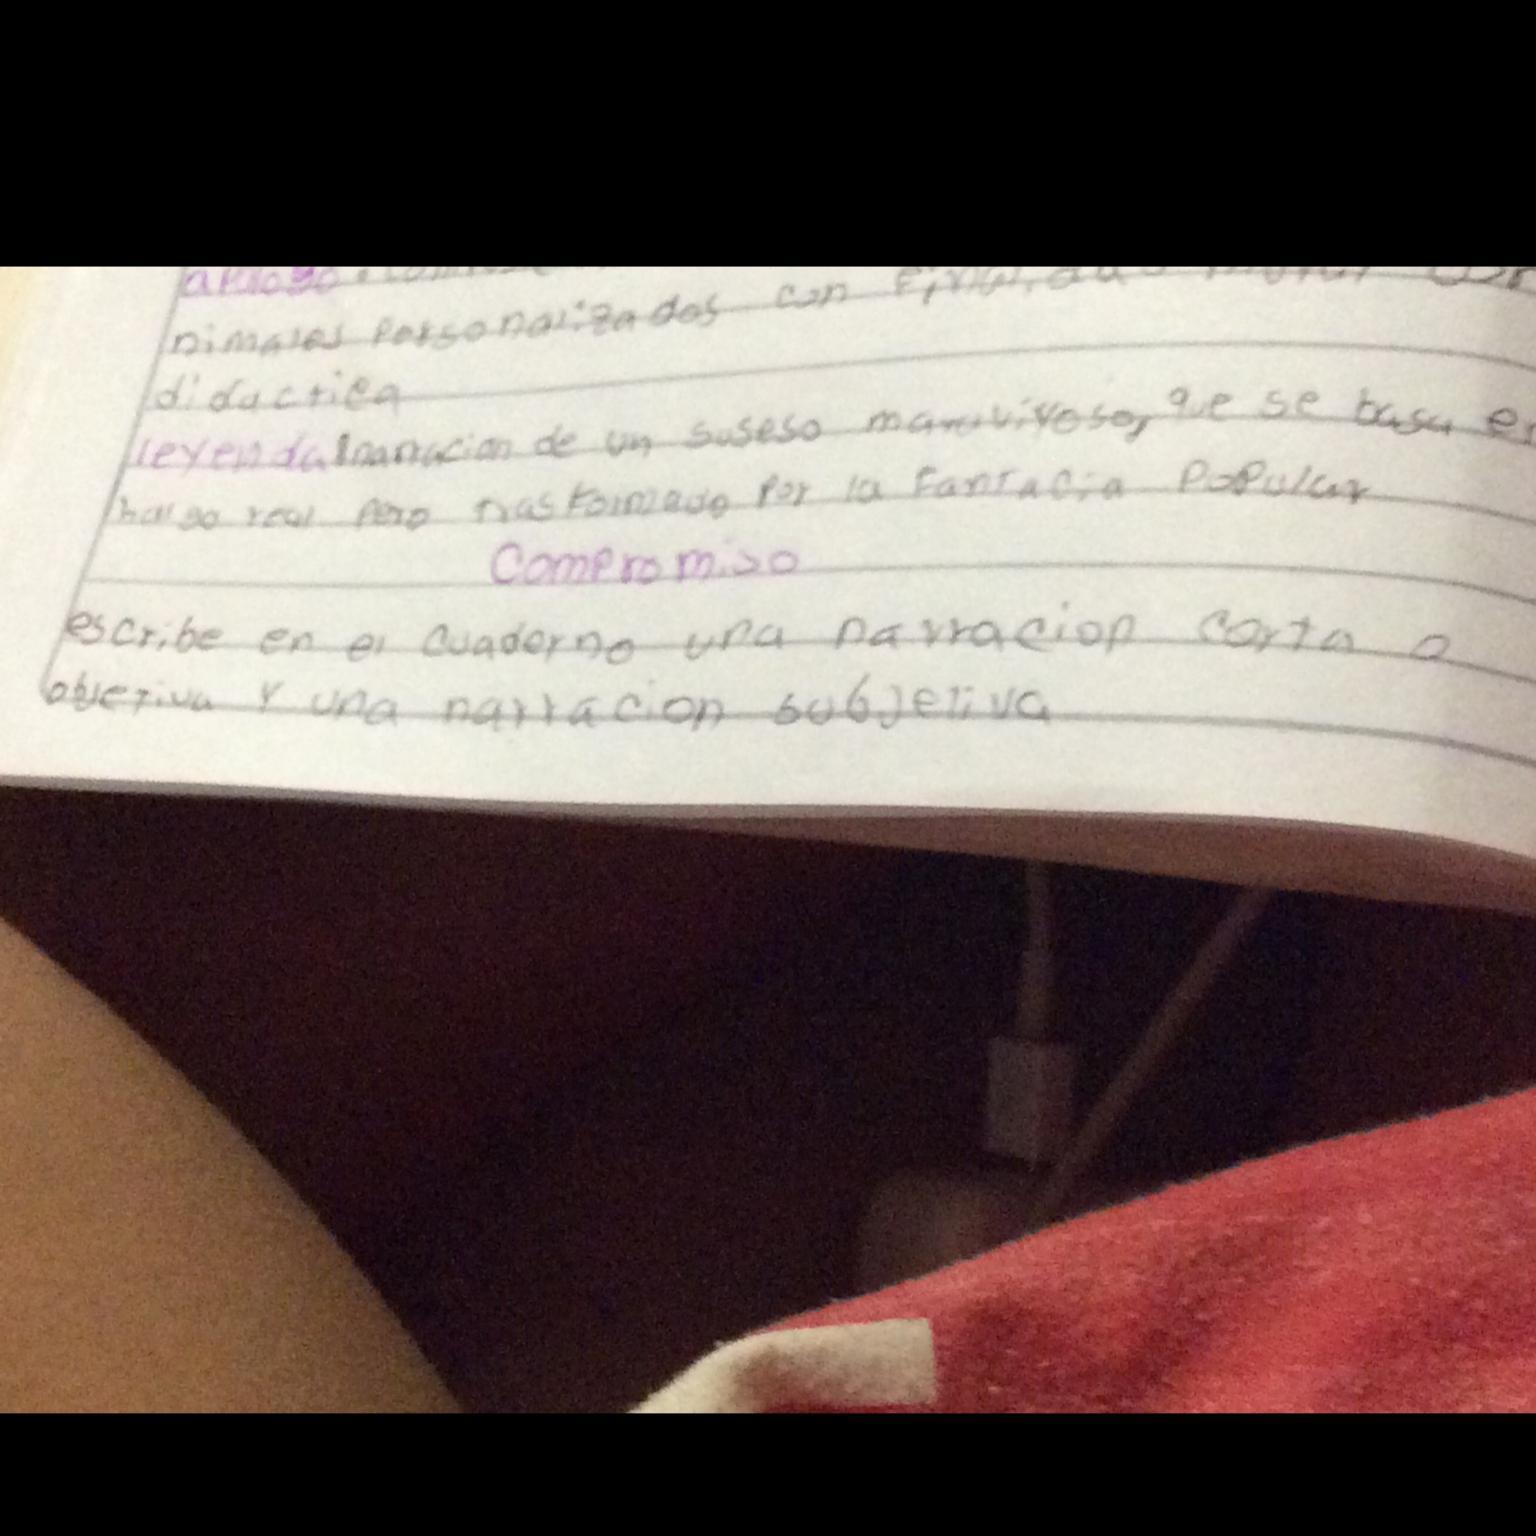 apologo
nimales personalizados con
didactica
leyenda narracion de un suseso maravilloso, que se basa en
halgo real pero trasformado por la Fantacia Popular
Compromiso
escribe en el cuaderno una narracion corta o
objetiva y una narracion subjetiva